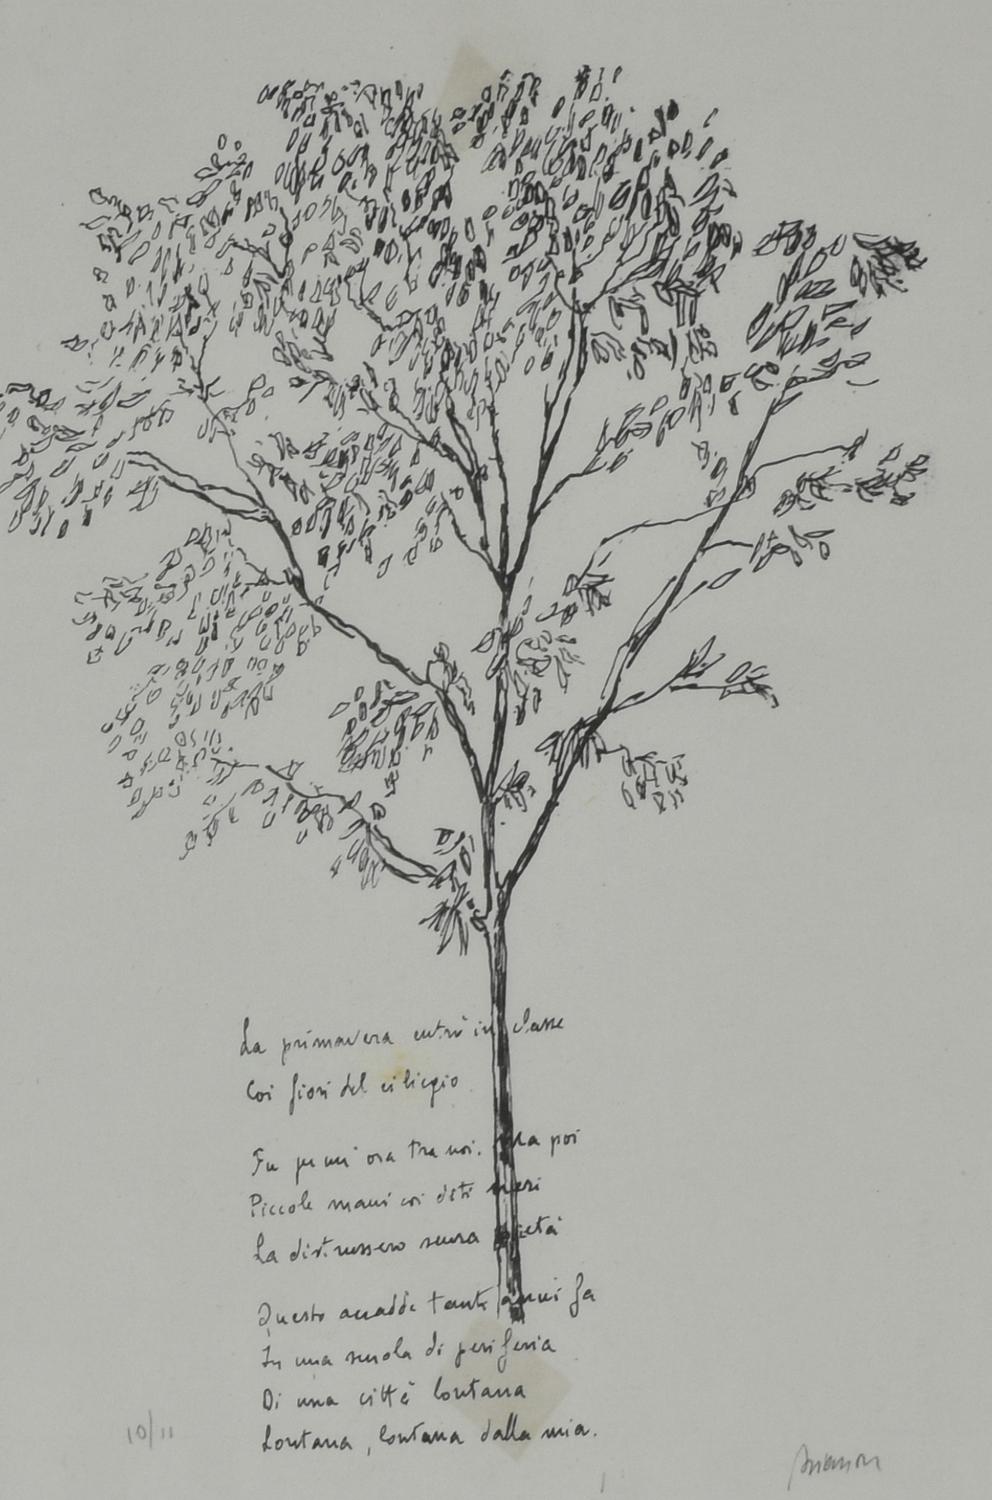 La primavera entrò in classe
Coi fiori del ciliegio
Fu per un'ora tra noi. Ma poi
Piccole mani coi diti neri
La distrussero senza pietà
Questo accadde tanti anni fa
In una scuola di periferia
Di una città lontana
Lontana, lontana dalla mia.
10/11